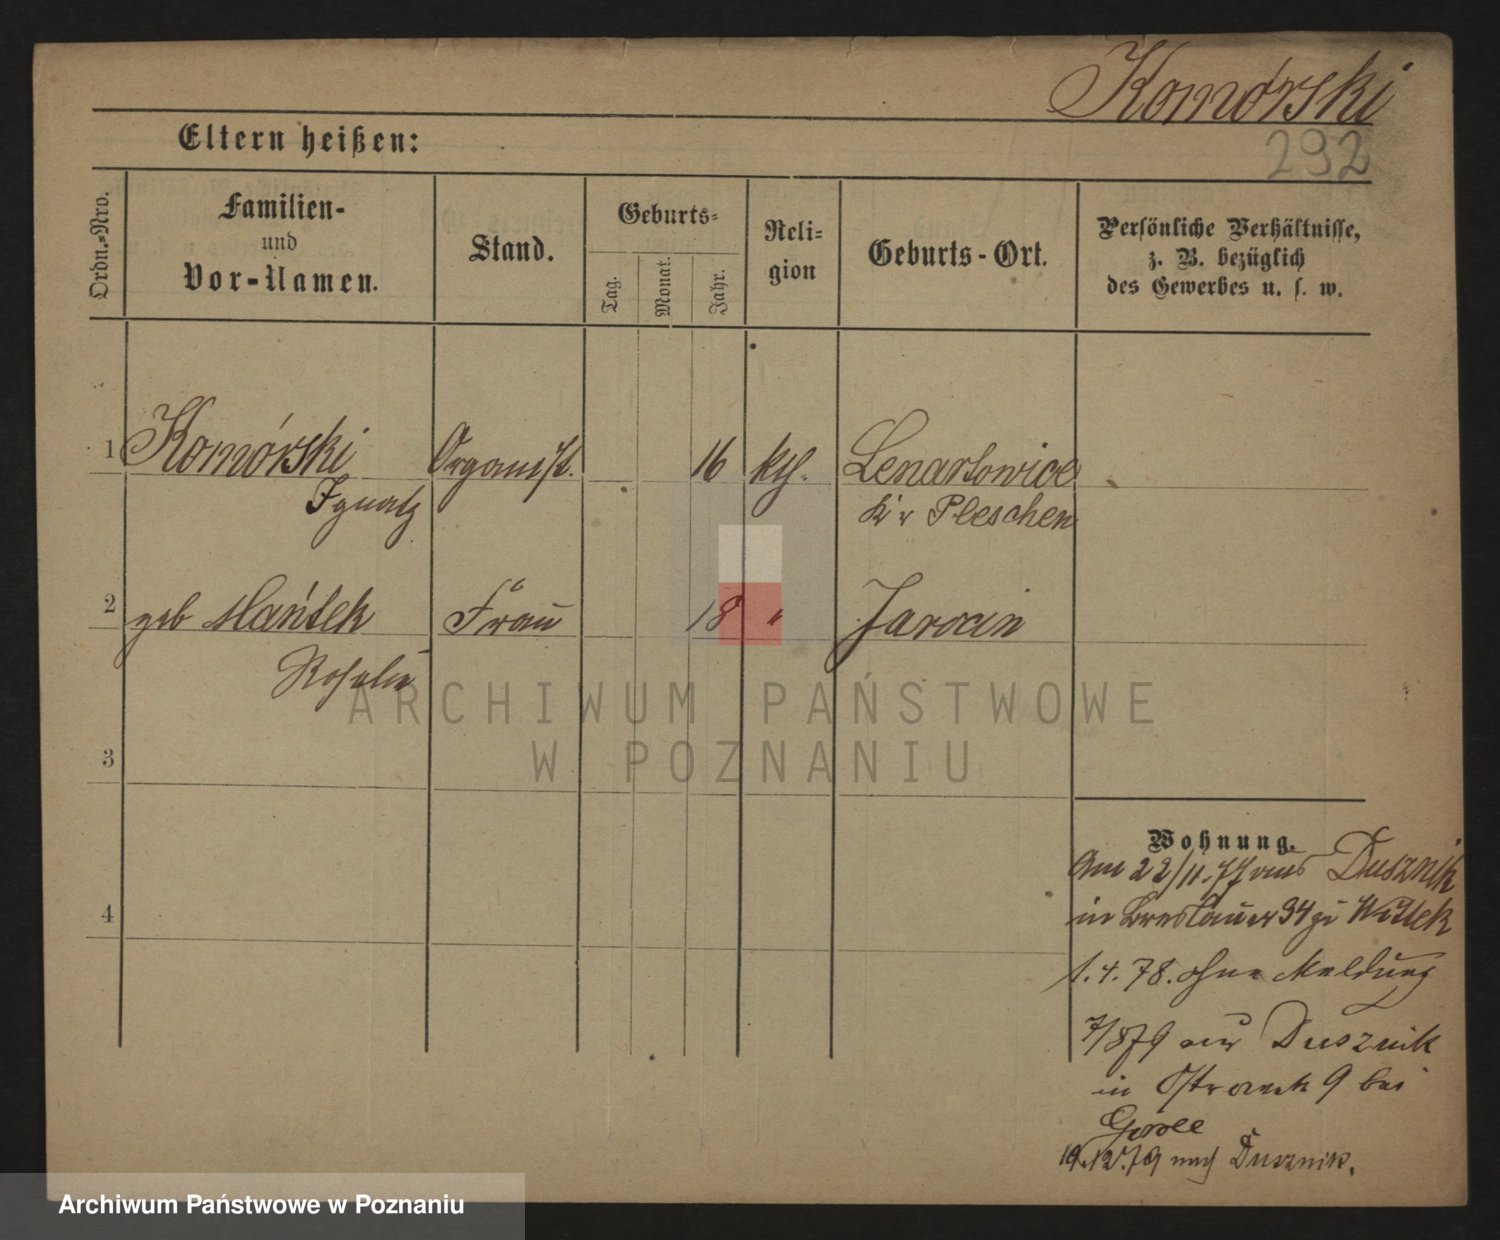 Komórski
292
Eltern heißen:
Ordn.-Nro.
Familien-
und
Vor-Namen.
Stand.
Geburts-
Tag.
Monat.
Jahr.
Reli-
gion
Geburts-Ort.
Persönliche Verhältnisse,
z. B. bezüglich
des Gewerbes u. s. w.
1 Komórski Organist. 16 kth. Lenartowice
Ignatz Kr Pleschen
2 geb Mańtek Frau 18 " Jarocin
Rosalie
3
4
Wohnung.
Am 22/11.77 aus Dusznik
in Breslauer 34 zu Wittek
1.4.78. ohne Meldung
7/8 79 aus Dusznik
in Ostrowek 9 bei
19.12.79 nach Dusznik.
ARCHIWUM PAŃSTWOWE
W POZNANIU
Archiwum Państwowe w Poznaniu